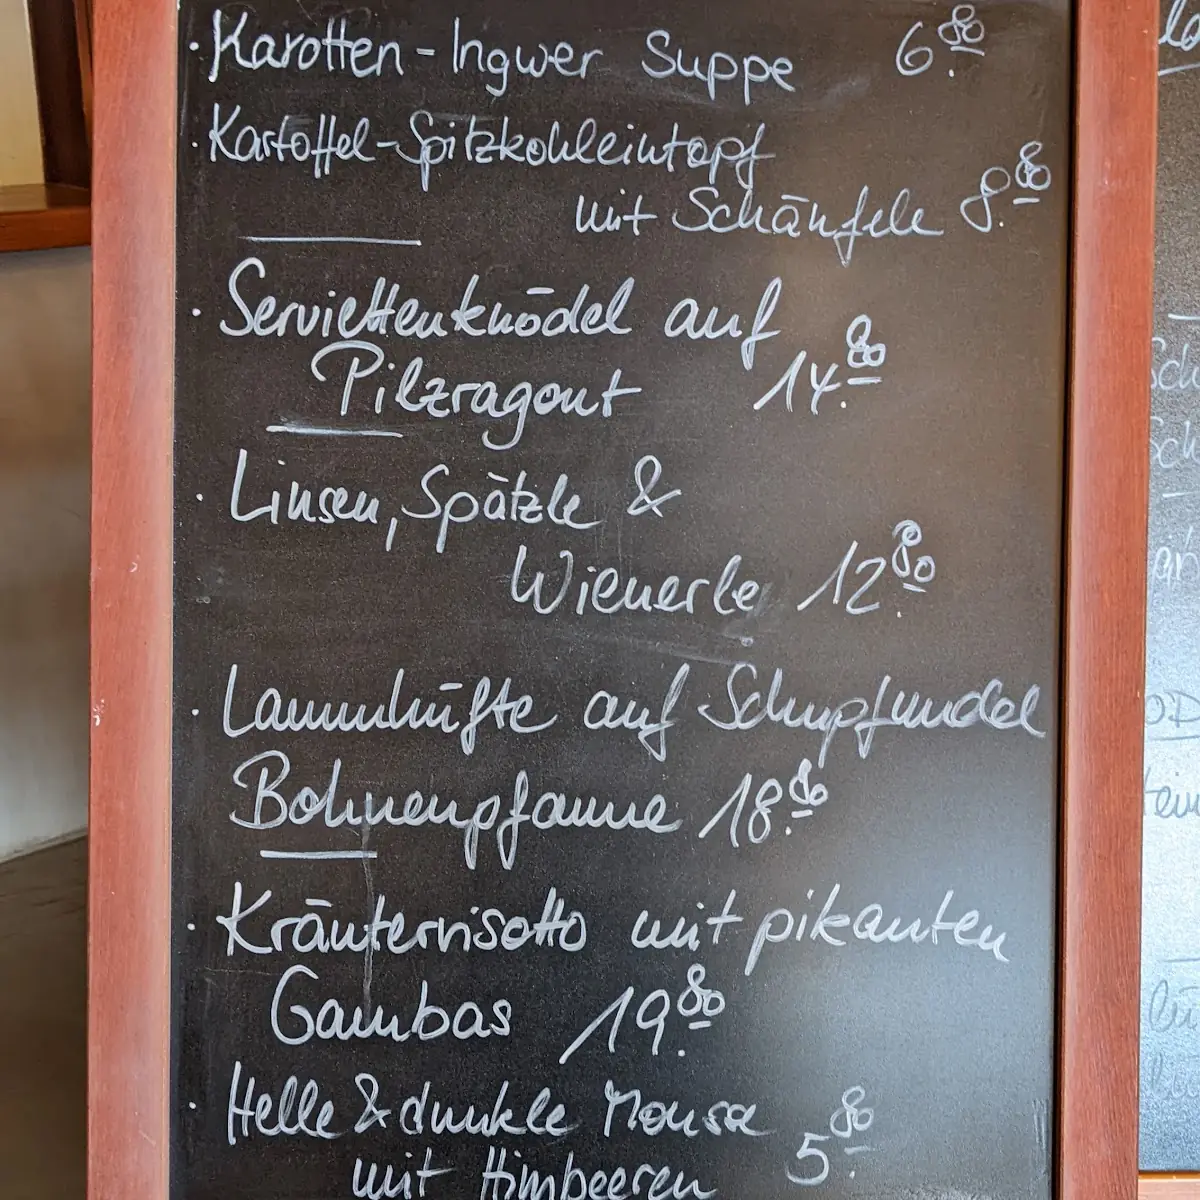 · Karotten-Ingwer Suppe 6.80
· Kartoffel-Spitzkohleintopf
mit Schäufele 8.80
· Serviettenknödel auf
Pilzragout 14.80
· Linsen, Spätzle &
Wienerle 12.80
· Lammhüfte auf Schupfnudel
Bohnenpfanne 18.80
· Kräuterrisotto mit pikanten
Gambas 19.80
· Helle & dunkle Mousse
mit Himbeeren 5.80